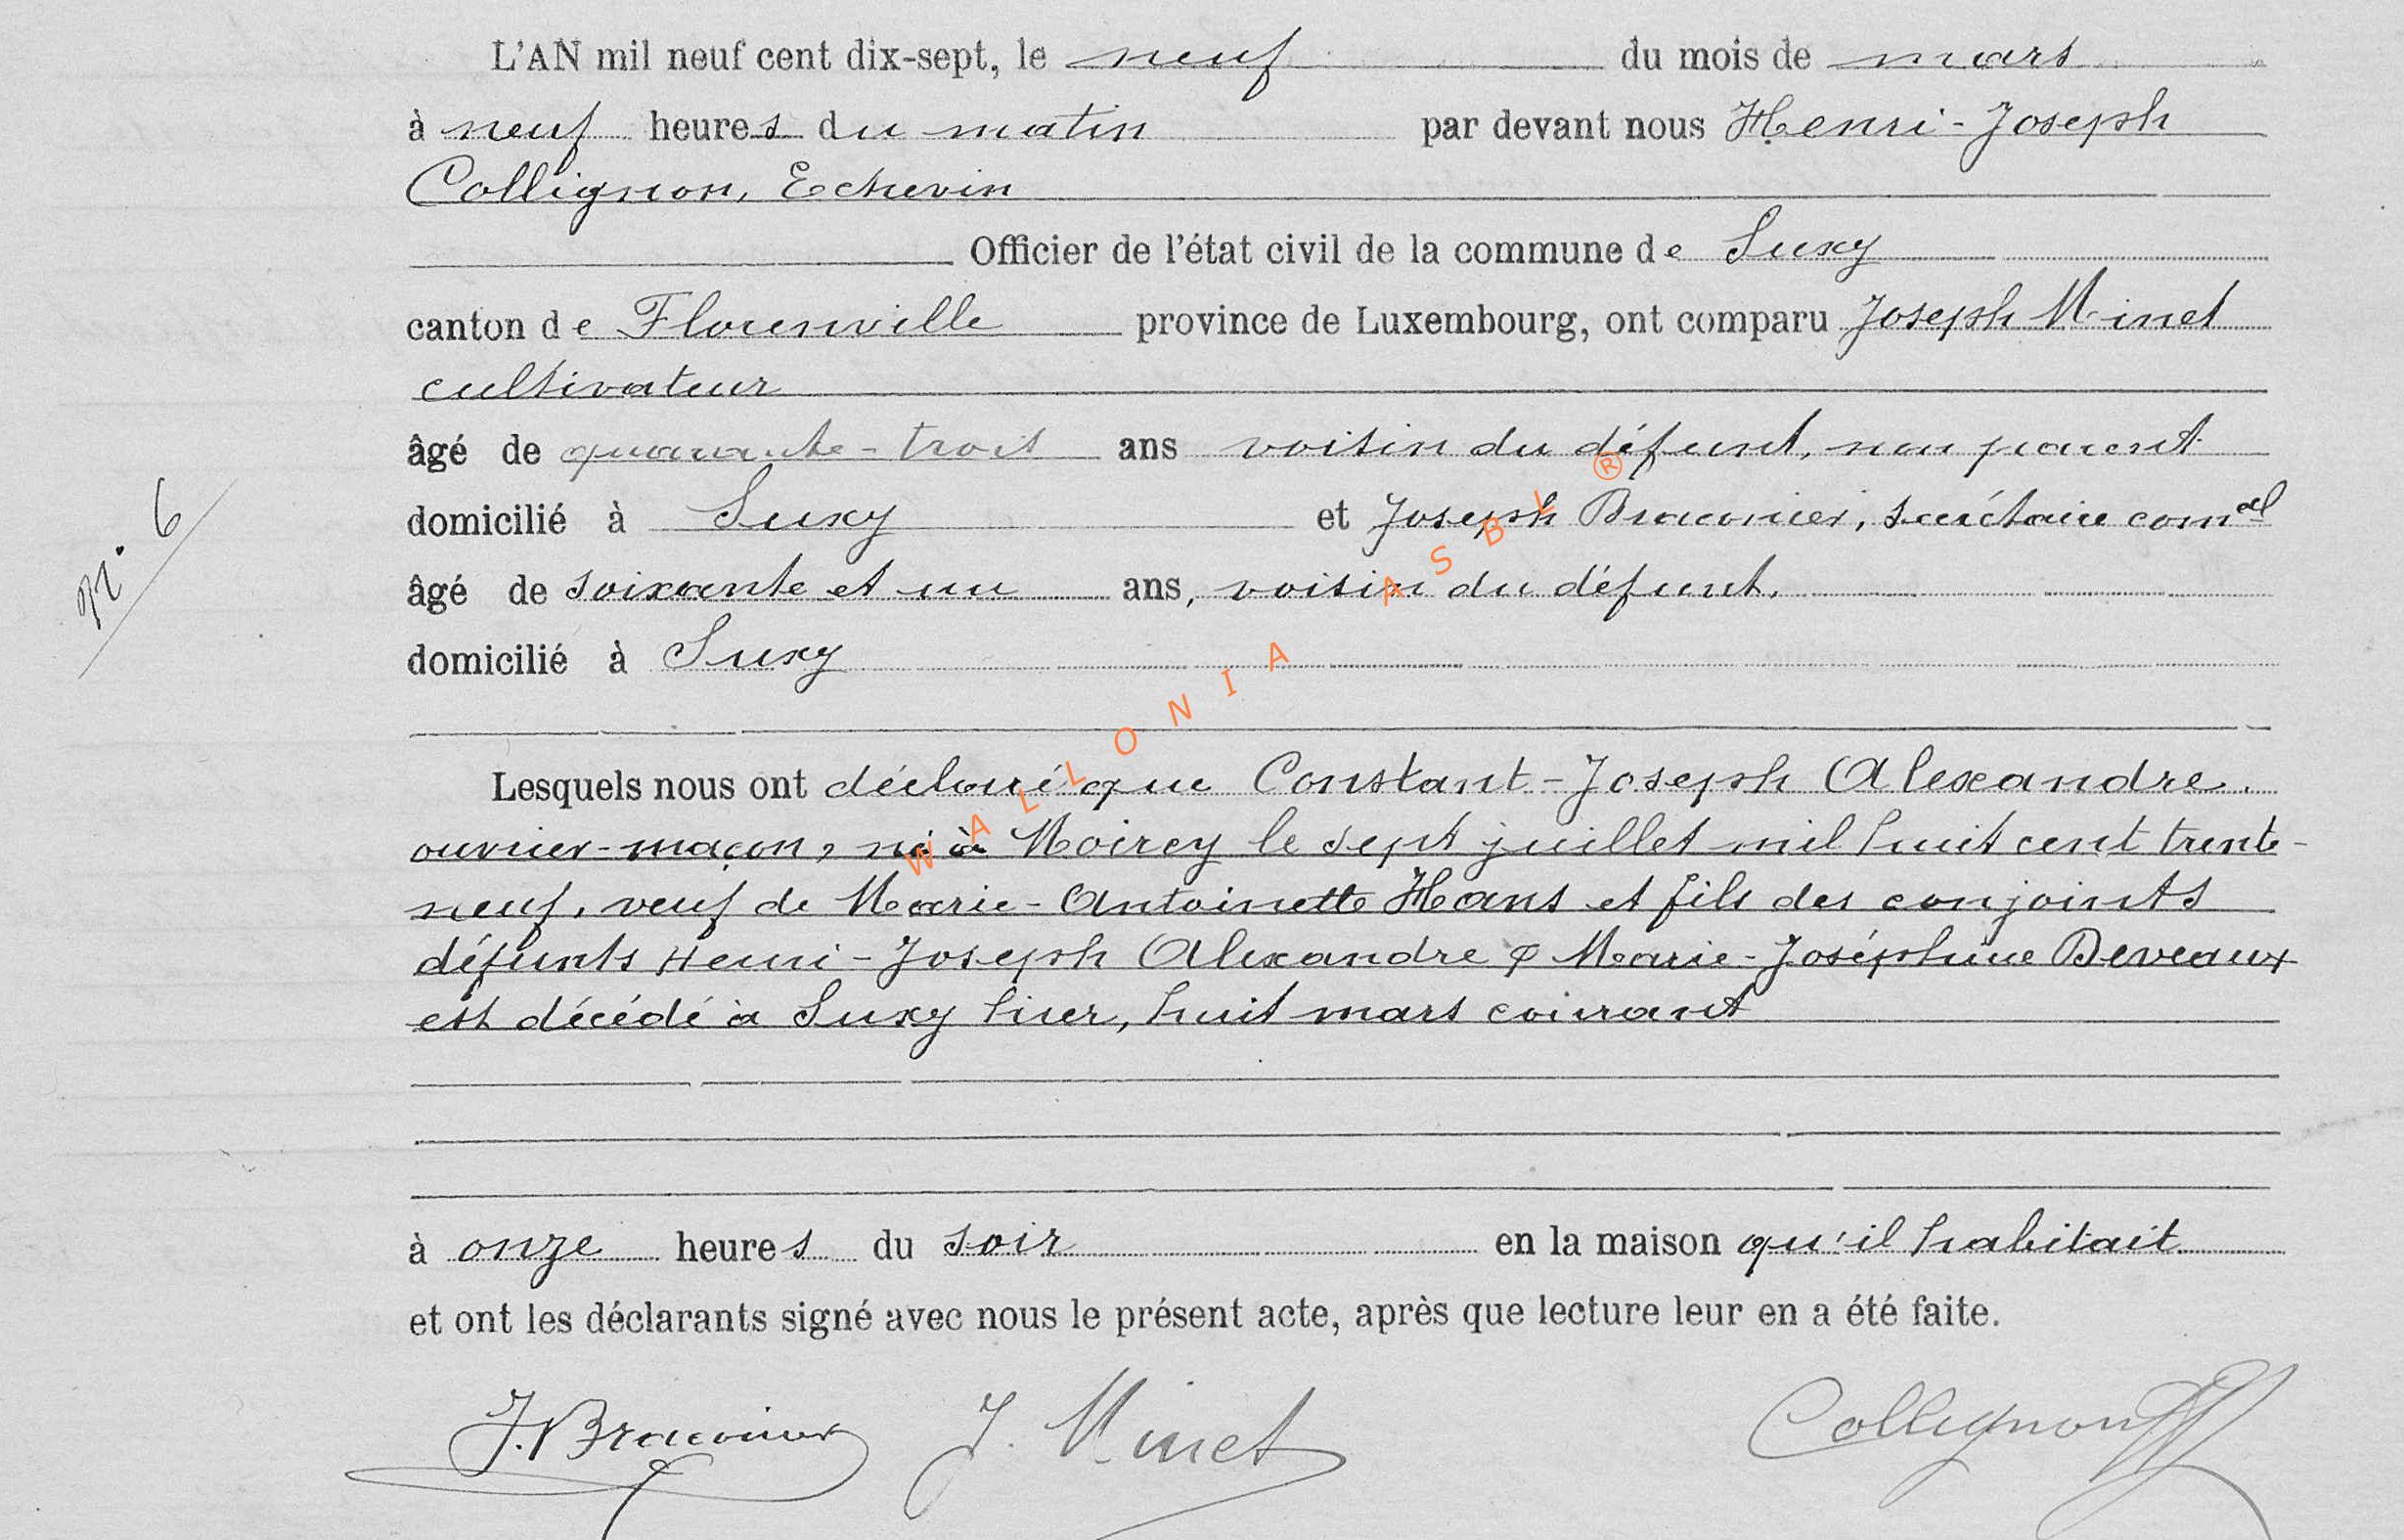 L'AN mil neuf cent dix-sept, le neuf du mois de mars
à neuf heures du matin par devant nous Henri-Joseph
Collignon, Echevin
Officier de l'état civil de la commune de Suxy
canton de Florenville province de Luxembourg, ont comparu Joseph Minet
cultivateur
âgé de quarante-trois ans voisin du défunt, non parent
domicilié à Suxy et Joseph Braconier, secrétaire comal
âgé de soixante et un ans, voisin du défunt.
domicilié à Suxy
N. 6
Lesquels nous ont déclaré que Constant-Joseph Alexandre,
ouvrier-maçon, né à Moirey le sept juillet mil huit cent trente-
neuf, veuf de Marie-Antoinette Hans et fils des conjoints
défunts Henri-Joseph Alexandre & Marie-Joséphine Deveaux
est décédé à Suxy hier, huit mars courant
à onze heures du soir en la maison qu'il habitait
et ont les déclarants signé avec nous le présent acte, après que lecture leur en a été faite.
J. Braconier J. Minet Collignon
WALLONIA ASBL ®